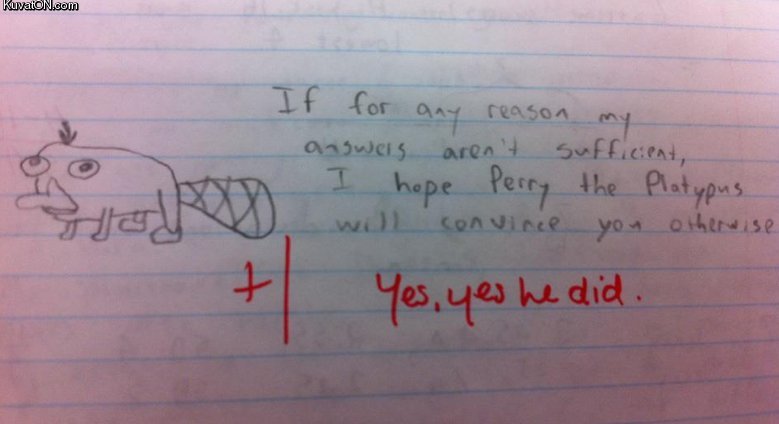 KuvatON.com
If for any reason my
answers aren't sufficient,
I hope Perry the Platypus
will convince you otherwise
+1 Yes, yes he did.